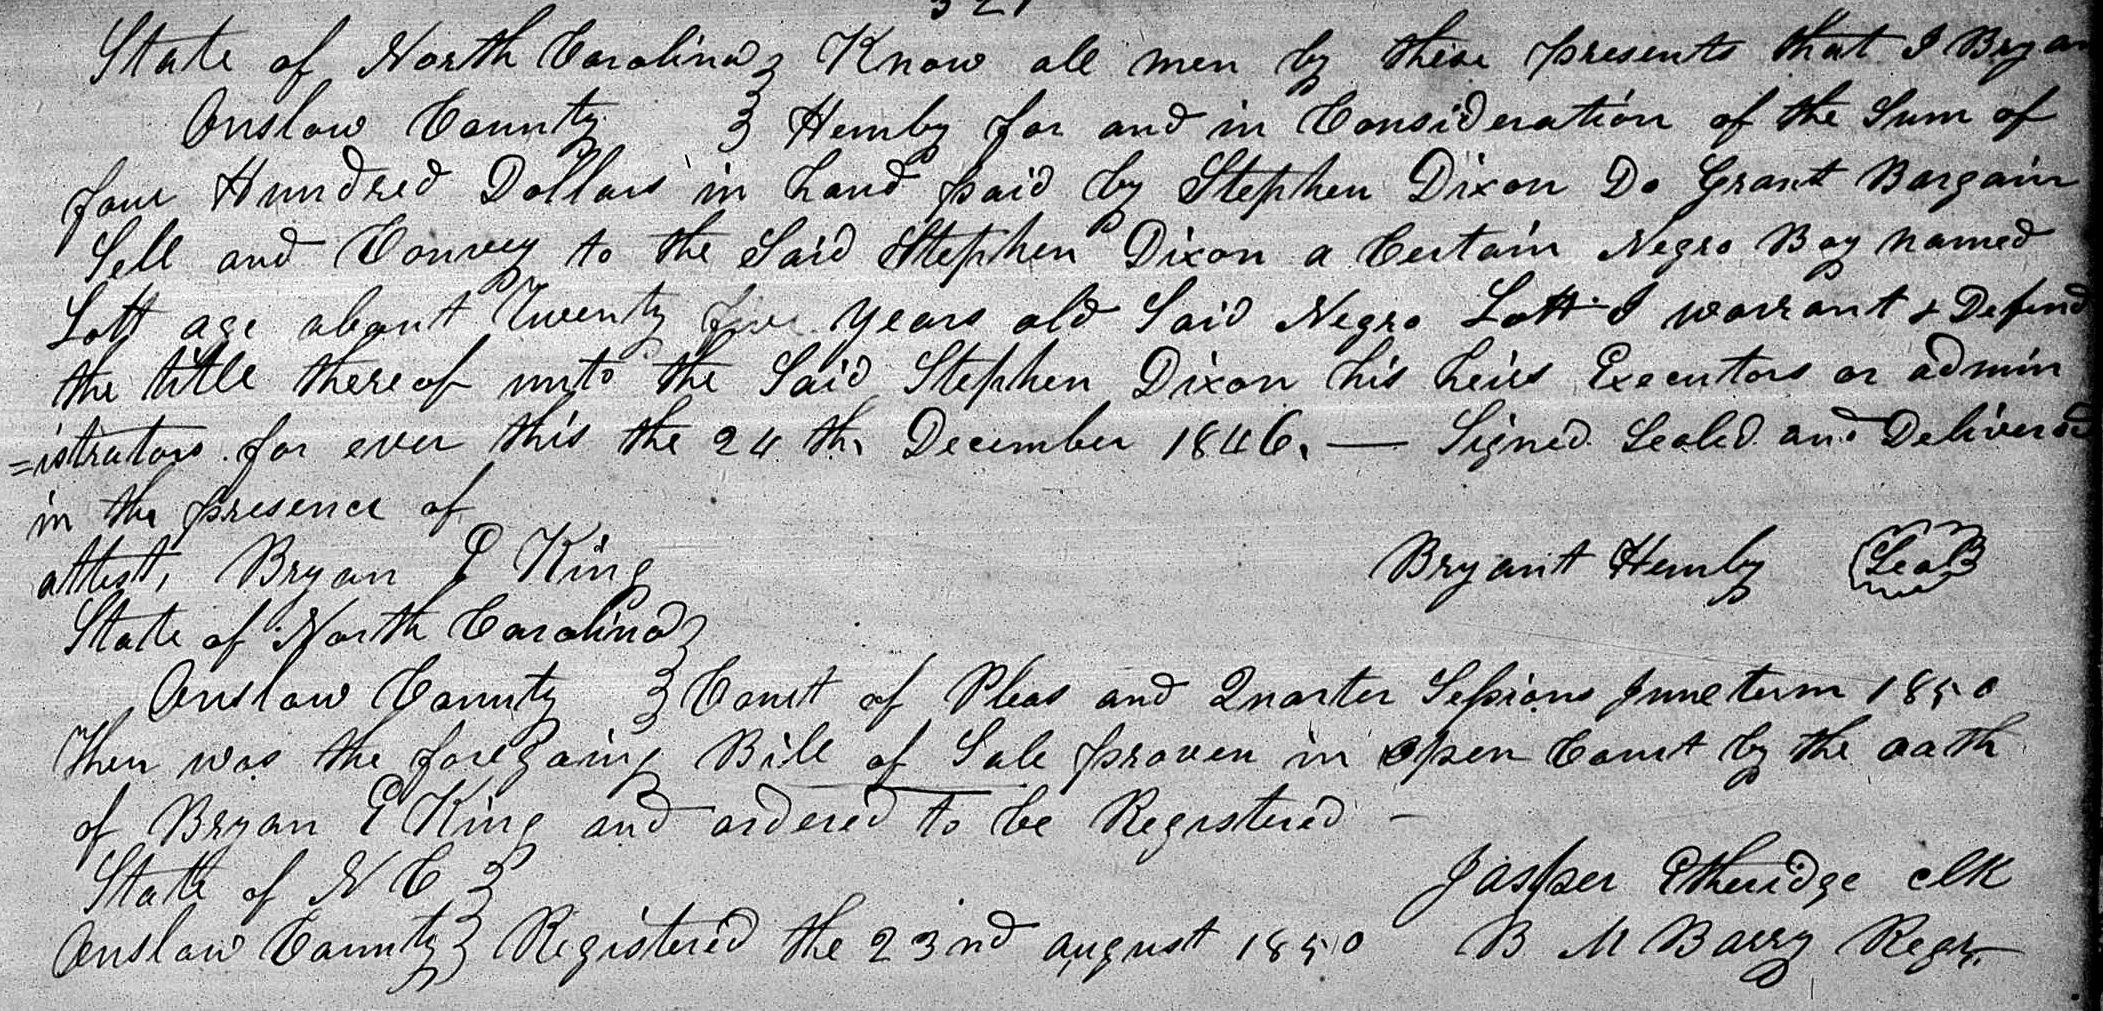 State of North Carolina } Know all men by these presents that I Bryan
Onslow County } Hemby for and in Consideration of the Sum of
four Hundred Dollars in hand paid by Stephen Dixon Do Grant Bargain
Sell and Convey to the Said Stephen Dixon a Certain Negro Boy named
Lott age about Twenty five years old Said Negro Lott I warrant & Defend
the title thereof unto the Said Stephen Dixon his heirs Executors or admin
=istrators for ever this the 24 th. December 1846. — Signed Sealed and Delivered
in the presence of
attest, Bryan E King Bryant Hemby Seal
State of North Carolina }
Onslow County } Court of Pleas and Quarter Sessions June term 1850
Then was the foregoing Bill of Sale proven in open Court by the oath
of Bryan E King and ordered to be Registered —
State of N C } Jasper Etheridge clk
Onslow County } Registered the 23nd august 1850 B M Barry Regr.